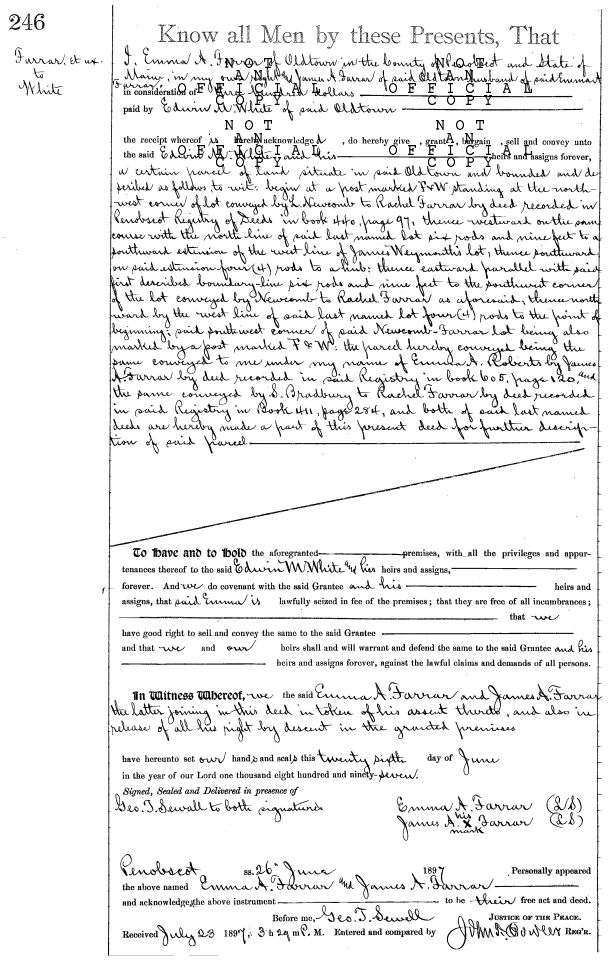 246
Farrar, et ux.
to
White
Know all Men by these Presents, That
I, Emma A. Farrar of Oldtown in the County of Penobscot and State of
Maine, in my own right & James A. Farrar of said Oldtown husband of said Emma A.
Farrar,
in consideration of Hundred Dollars
paid by Edwin M. White of said Oldtown
NOT AN OFFICIAL COPY
NOT AN OFFICIAL COPY
the receipt whereof is hereby acknowledged, do hereby give, grant, bargain, sell and convey unto
the said Edwin M. White and his heirs and assigns forever,
NOT AN OFFICIAL COPY
NOT AN OFFICIAL COPY
a certain parcel of land situate in said Oldtown and bounded and de-
scribed as follows to wit: begin at a post marked F&W standing at the north-
west corner of lot conveyed by L. Newcomb to Rachel Farrar by deed recorded in
Penobscot Registry of Deeds in book 440, page 97, thence westward on the same
course with the north line of said last named lot six rods and nine feet to a
southward extension of the west line of James Weymouth's lot; thence southward
on said extension four (4) rods to a hub: thence eastward parallel with said
first described boundary-line six rods and nine feet to the southwest corner
of the lot conveyed by Newcomb to Rachel Farrar as aforesaid, thence north
ward by the west line of said last named lot four (4) rods to the point of
beginning: said southwest corner of said Newcomb-Farrar lot being also
marked by a post marked F & W: the parcel hereby conveyed being the
same conveyed to me under my name of Emma A. Roberts by James
A. Farrar by deed recorded in said Registry in book 605, page 120, and
the same conveyed by S. Bradbury to Rachel Farrar by deed recorded
in said Registry in Book 411, page 284, and both of said last named
deeds are hereby made a part of this present deed for further descrip-
tion of said parcel
To Have and to Hold the aforegranted premises, with all the privileges and appur-
tenances thereof to the said Edwin M White and his heirs and assigns,
forever. And we do covenant with the said Grantee and his heirs and
assigns, that said Emma is lawfully seized in fee of the premises; that they are free of all incumbrances;
that we
have good right to sell and convey the same to the said Grantee
and that we and our heirs shall and will warrant and defend the same to the said Grantee and his
heirs and assigns forever, against the lawful claims and demands of all persons.
In Witness Whereof, we the said Emma A. Farrar and James A. Farrar
the latter joining in this deed in token of his assent thereto, and also in
release of all his right by descent in the granted premises
have hereunto set our hands and seals this twenty sixth day of June
in the year of our Lord one thousand eight hundred and ninety-seven.
Signed, Sealed and Delivered in presence of
Geo. T. Sewall to both signatures Emma A. Farrar (LS)
James A. his X mark Farrar (LS)
Penobscot ss. 26" June 1897 Personally appeared
the above named Emma A. Farrar and James A. Farrar
and acknowledged the above instrument to be their free act and deed.
Before me, Geo. T. Sewall JUSTICE OF THE PEACE.
Received July 23 1897, 3 h 29 m P. M. Entered and compared by John Bowler REG'R.